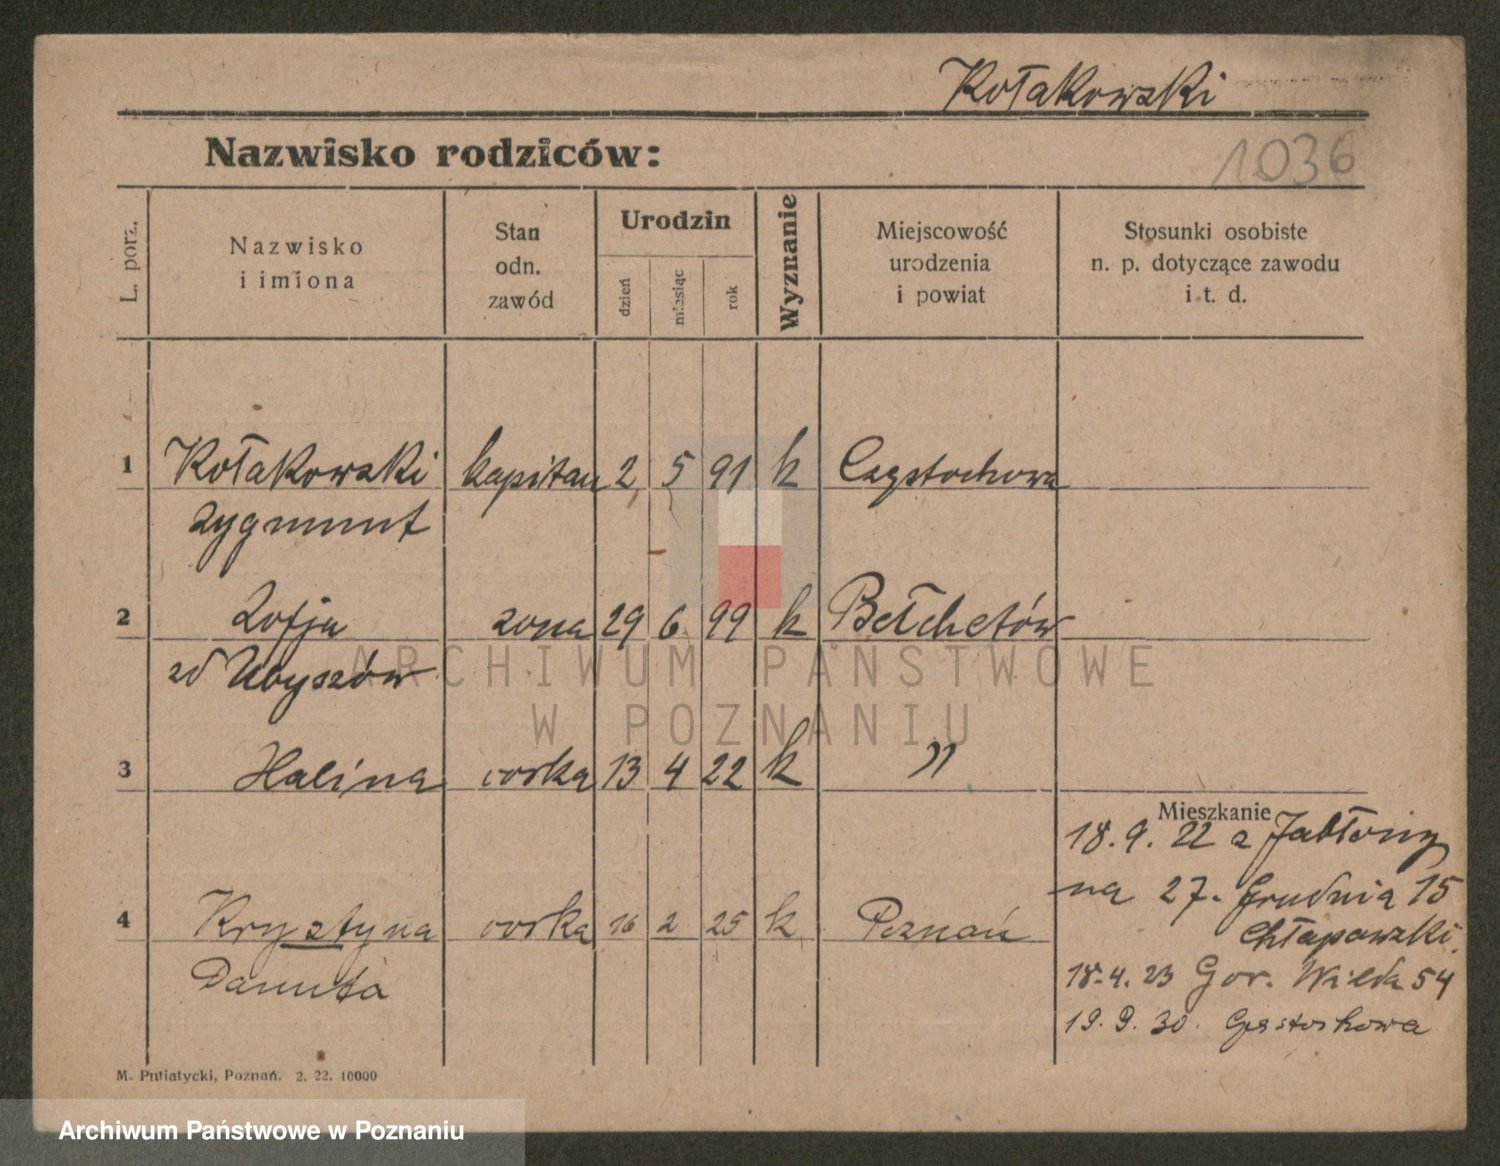 Kołakowski
Nazwisko rodziców:
1036
L. porz.
Nazwisko
i imiona
Stan
odn.
zawód
Urodzin
dzień
miesiąc
rok
Wyznanie
Miejscowość
urodzenia
i powiat
Stosunki osobiste
n. p. dotyczące zawodu
i t. d.
1 Kołakowski kapitan 2 5 91 k Częstochowa
Zygmunt
2 Zofja żona 29 6 99 k Bełchetów
zd Ubyszów
ARCHIWUM PAŃSTWOWE
W POZNANIU
3 Halina corka 13 4 22 k "
Mieszkanie
18. 9. 22 z Jabłony
na 27. Grudnia 15
4 Krystyna corka 16 2 25 k Poznań
Chłapowski
Danuta
18.4. 23 Gor. Wilda 54
19. 9. 30. Częstochowa
M. Putiatycki, Poznań. 2. 22. 10000
Archiwum Państwowe w Poznaniu